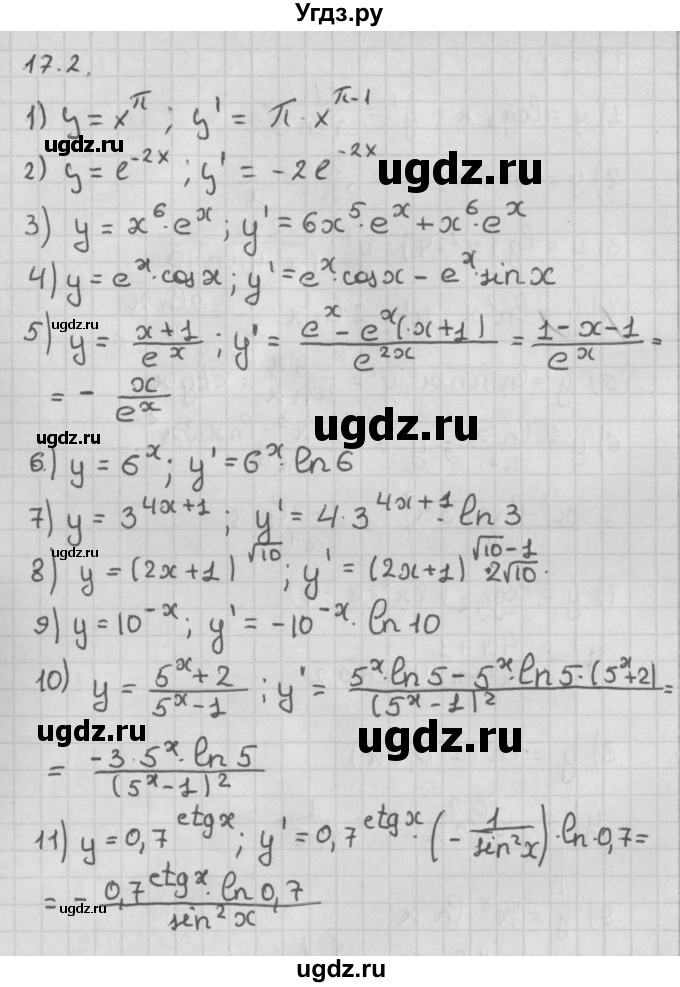 Угдз.ру
17.2.
1) y = x^π ; y' = π · x^(π-1)
ugdz.ru
2) y = e^(-2x) ; y' = -2e^(-2x)
ugdz.ru
3) y = x^6 · e^x ; y' = 6x^5 · e^x + x^6 · e^x
4) y = e^x · cos x ; y' = e^x · cos x - e^x · sin x
ugdz.ru
5) y = (x+1)/(e^x) ; y' = (e^x - e^x(·x+1))/(e^(2x)) = (1-x-1)/(e^x) =
= - x/(e^x)
ugdz.ru
ugdz.ru
6.) y = 6^x ; y' = 6^x · ln 6
7) y = 3^(4x+1) ; y' = 4·3^(4x+1) · ln 3
ugdz.ru
8) y = (2x+1)^(√10) ; y' = (2x+1)^(√10-1) · 2√10
ugdz.ru
9) y = 10^(-x) ; y' = -10^(-x) · ln 10
10) y = (5^x+2)/(5^x-1) ; y' = (5^x · ln 5 - 5^x · ln 5 · (5^x+2))/((5^x-1)^2) =
ugdz.ru
ugdz.ru
= (-3·5^x · ln 5)/((5^x-1)^2)
11) y = 0,7^(ctg x) ; y' = 0,7^(ctg x) · (- 1/(sin^2 x)) · ln·0,7 =
ugdz.ru
= - (0,7^(ctg x) · ln 0,7)/(sin^2 x)
ugdz.ru
ugdz.ru
ugdz.ru